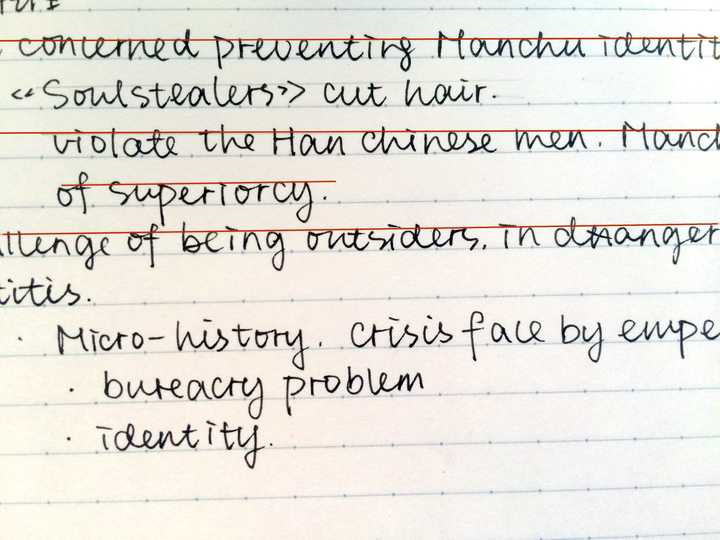 concerned preventing Manchu identit
«Soulstealers» cut hair.
violate the Han chinese men. Manch
of superiorcy.
llenge of being outsiders, in danger
titis.
· Micro-history. crisis face by empe
· bureacry problem
· identity.